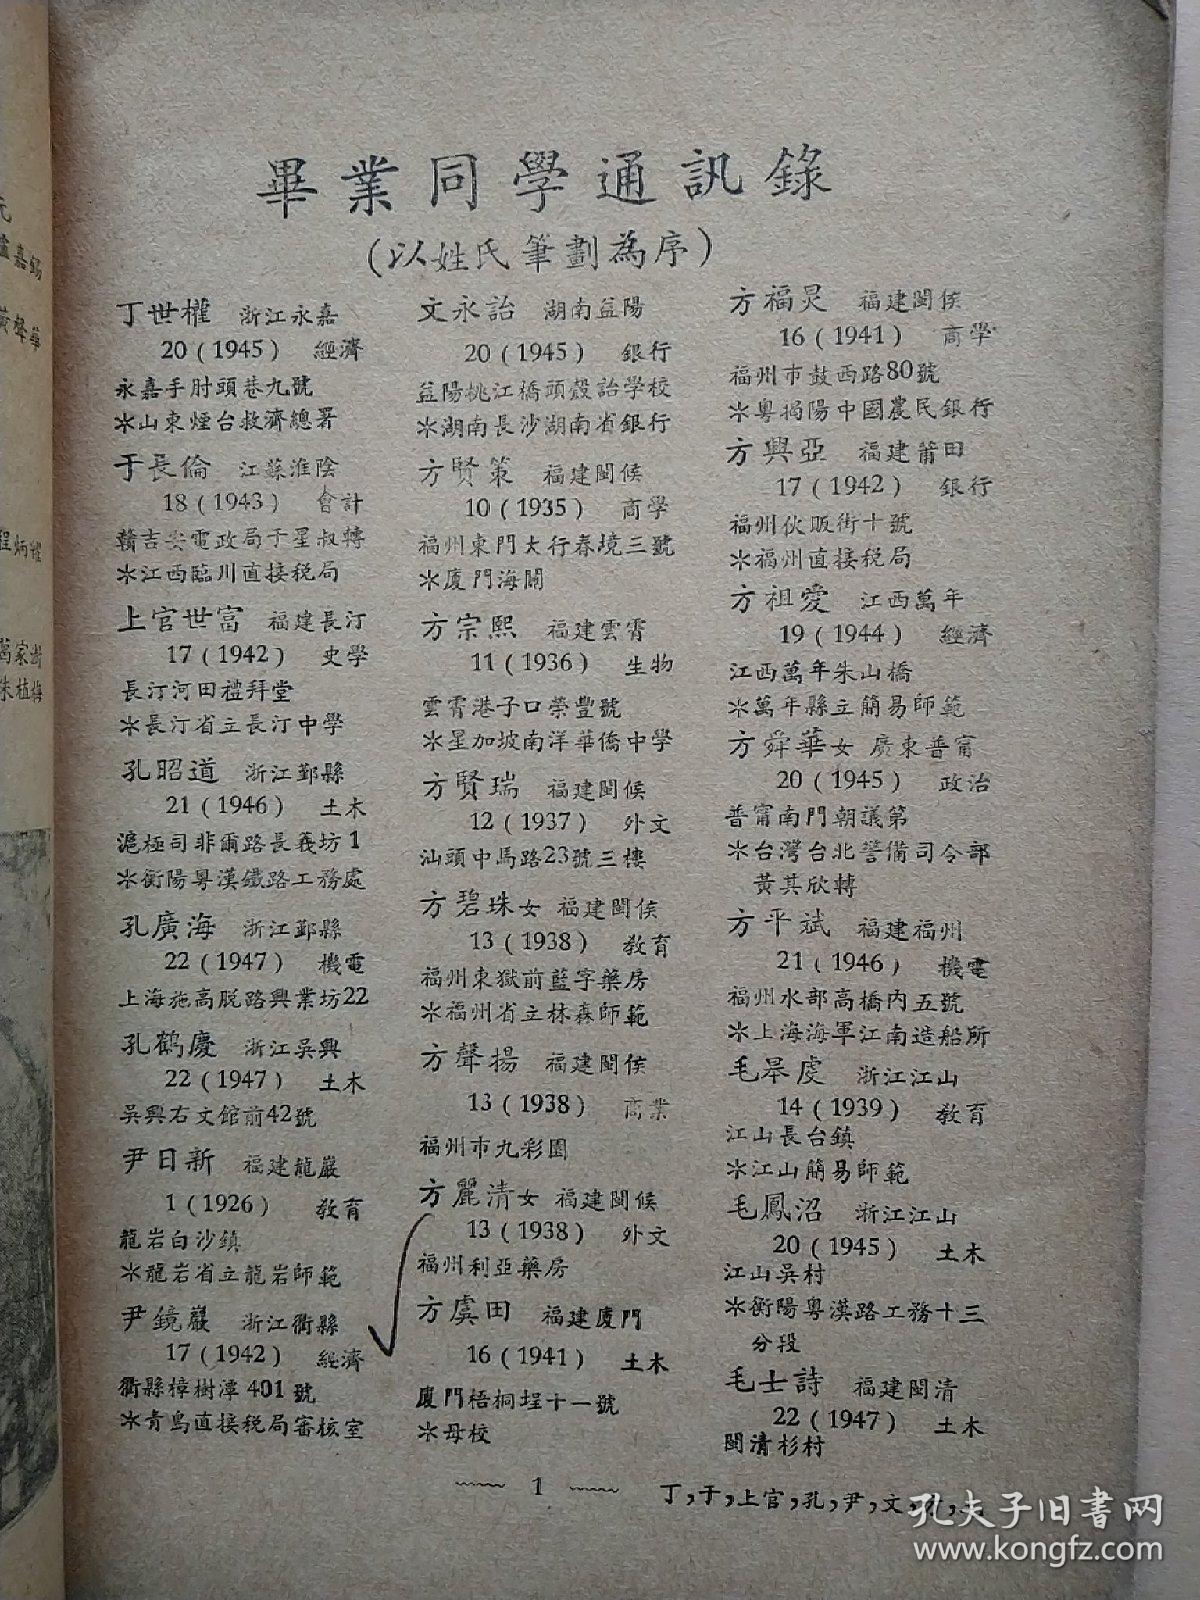 畢業同學通訊錄
(以姓氏筆劃為序)
丁世權 浙江永嘉
20(1945) 經濟
永嘉手肘頭巷九號
＊山東煙台救濟總署
于長倫 江蘇淮陰
18(1943) 會計
贛吉安電政局于星叔轉
＊江西臨川直接稅局
上官世富 福建長汀
17(1942) 史學
長汀河田禮拜堂
＊長汀省立長汀中學
孔昭道 浙江鄞縣
21(1946) 土木
滬極司非爾路長義坊1
＊衡陽粵漢鐵路工務處
孔廣海 浙江鄞縣
22(1947) 機電
上海施高脫路興業坊22
孔鹤慶 浙江吳興
22(1947) 土木
吳興右文館前42號
尹日新 福建龍巖
1(1926) 教育
龍岩白沙鎮
＊龍岩省立龍岩師範
尹鏡巖 浙江衢縣
17(1942) 經濟
衢縣樟樹潭401號
＊青島直接稅局審核室
文永詒 湖南益陽
20(1945) 銀行
益陽桃江橋頭穀詒學校
＊湖南長沙湖南省銀行
方賢策 福建閩侯
10(1935) 商學
福州東門大行春境三號
＊廈門海關
方宗熙 福建雲霄
11(1936) 生物
雲霄港子口榮豐號
＊星加坡南洋華僑中學
方賢瑞 福建閩侯
12(1937) 外文
汕頭中馬路23號三樓
方碧珠女 福建閩侯
13(1938) 教育
福州東嶽前藍字藥房
＊福州省立林森師範
方聲揚 福建閩侯
13(1938) 商業
福州市九彩園
方麗清女 福建閩侯
13(1938) 外文
福州利亞藥房
方虞田 福建廈門
16(1941) 土木
廈門梧桐埕十一號
＊母校
方福炅 福建閩侯
16(1941) 商學
福州市鼓西路80號
＊粵揭陽中國農民銀行
方興亞 福建莆田
17(1942) 銀行
福州伙販街十號
＊福州直接稅局
方祖愛 江西萬年
19(1944) 經濟
江西萬年朱山橋
＊萬年縣立簡易師範
方舜華女 廣東普甯
20(1945) 政治
普甯南門朝議第
＊台灣台北警備司令部
黃其欣轉
方平斌 福建福州
21(1946) 機電
福州水部高橋內五號
＊上海海軍江南造船所
毛昪虔 浙江江山
14(1939) 教育
江山長台鎮
＊江山簡易師範
毛鳳沼 浙江江山
20(1945) 土木
江山吳村
＊衡陽粵漢路工務十三
分段
毛士詩 福建閩清
22(1947) 土木
閩清杉村
1
丁,于,上官,孔,尹,文,
孔夫子旧书网
www.kongfz.com
嘉錫
黃聲華
程炳耀
萬家澍
朱植梅